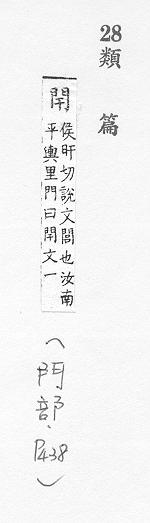 28 類篇
閈
侯旰切說文閭也汝南
平輿里門曰閈文一
(門部, P438)